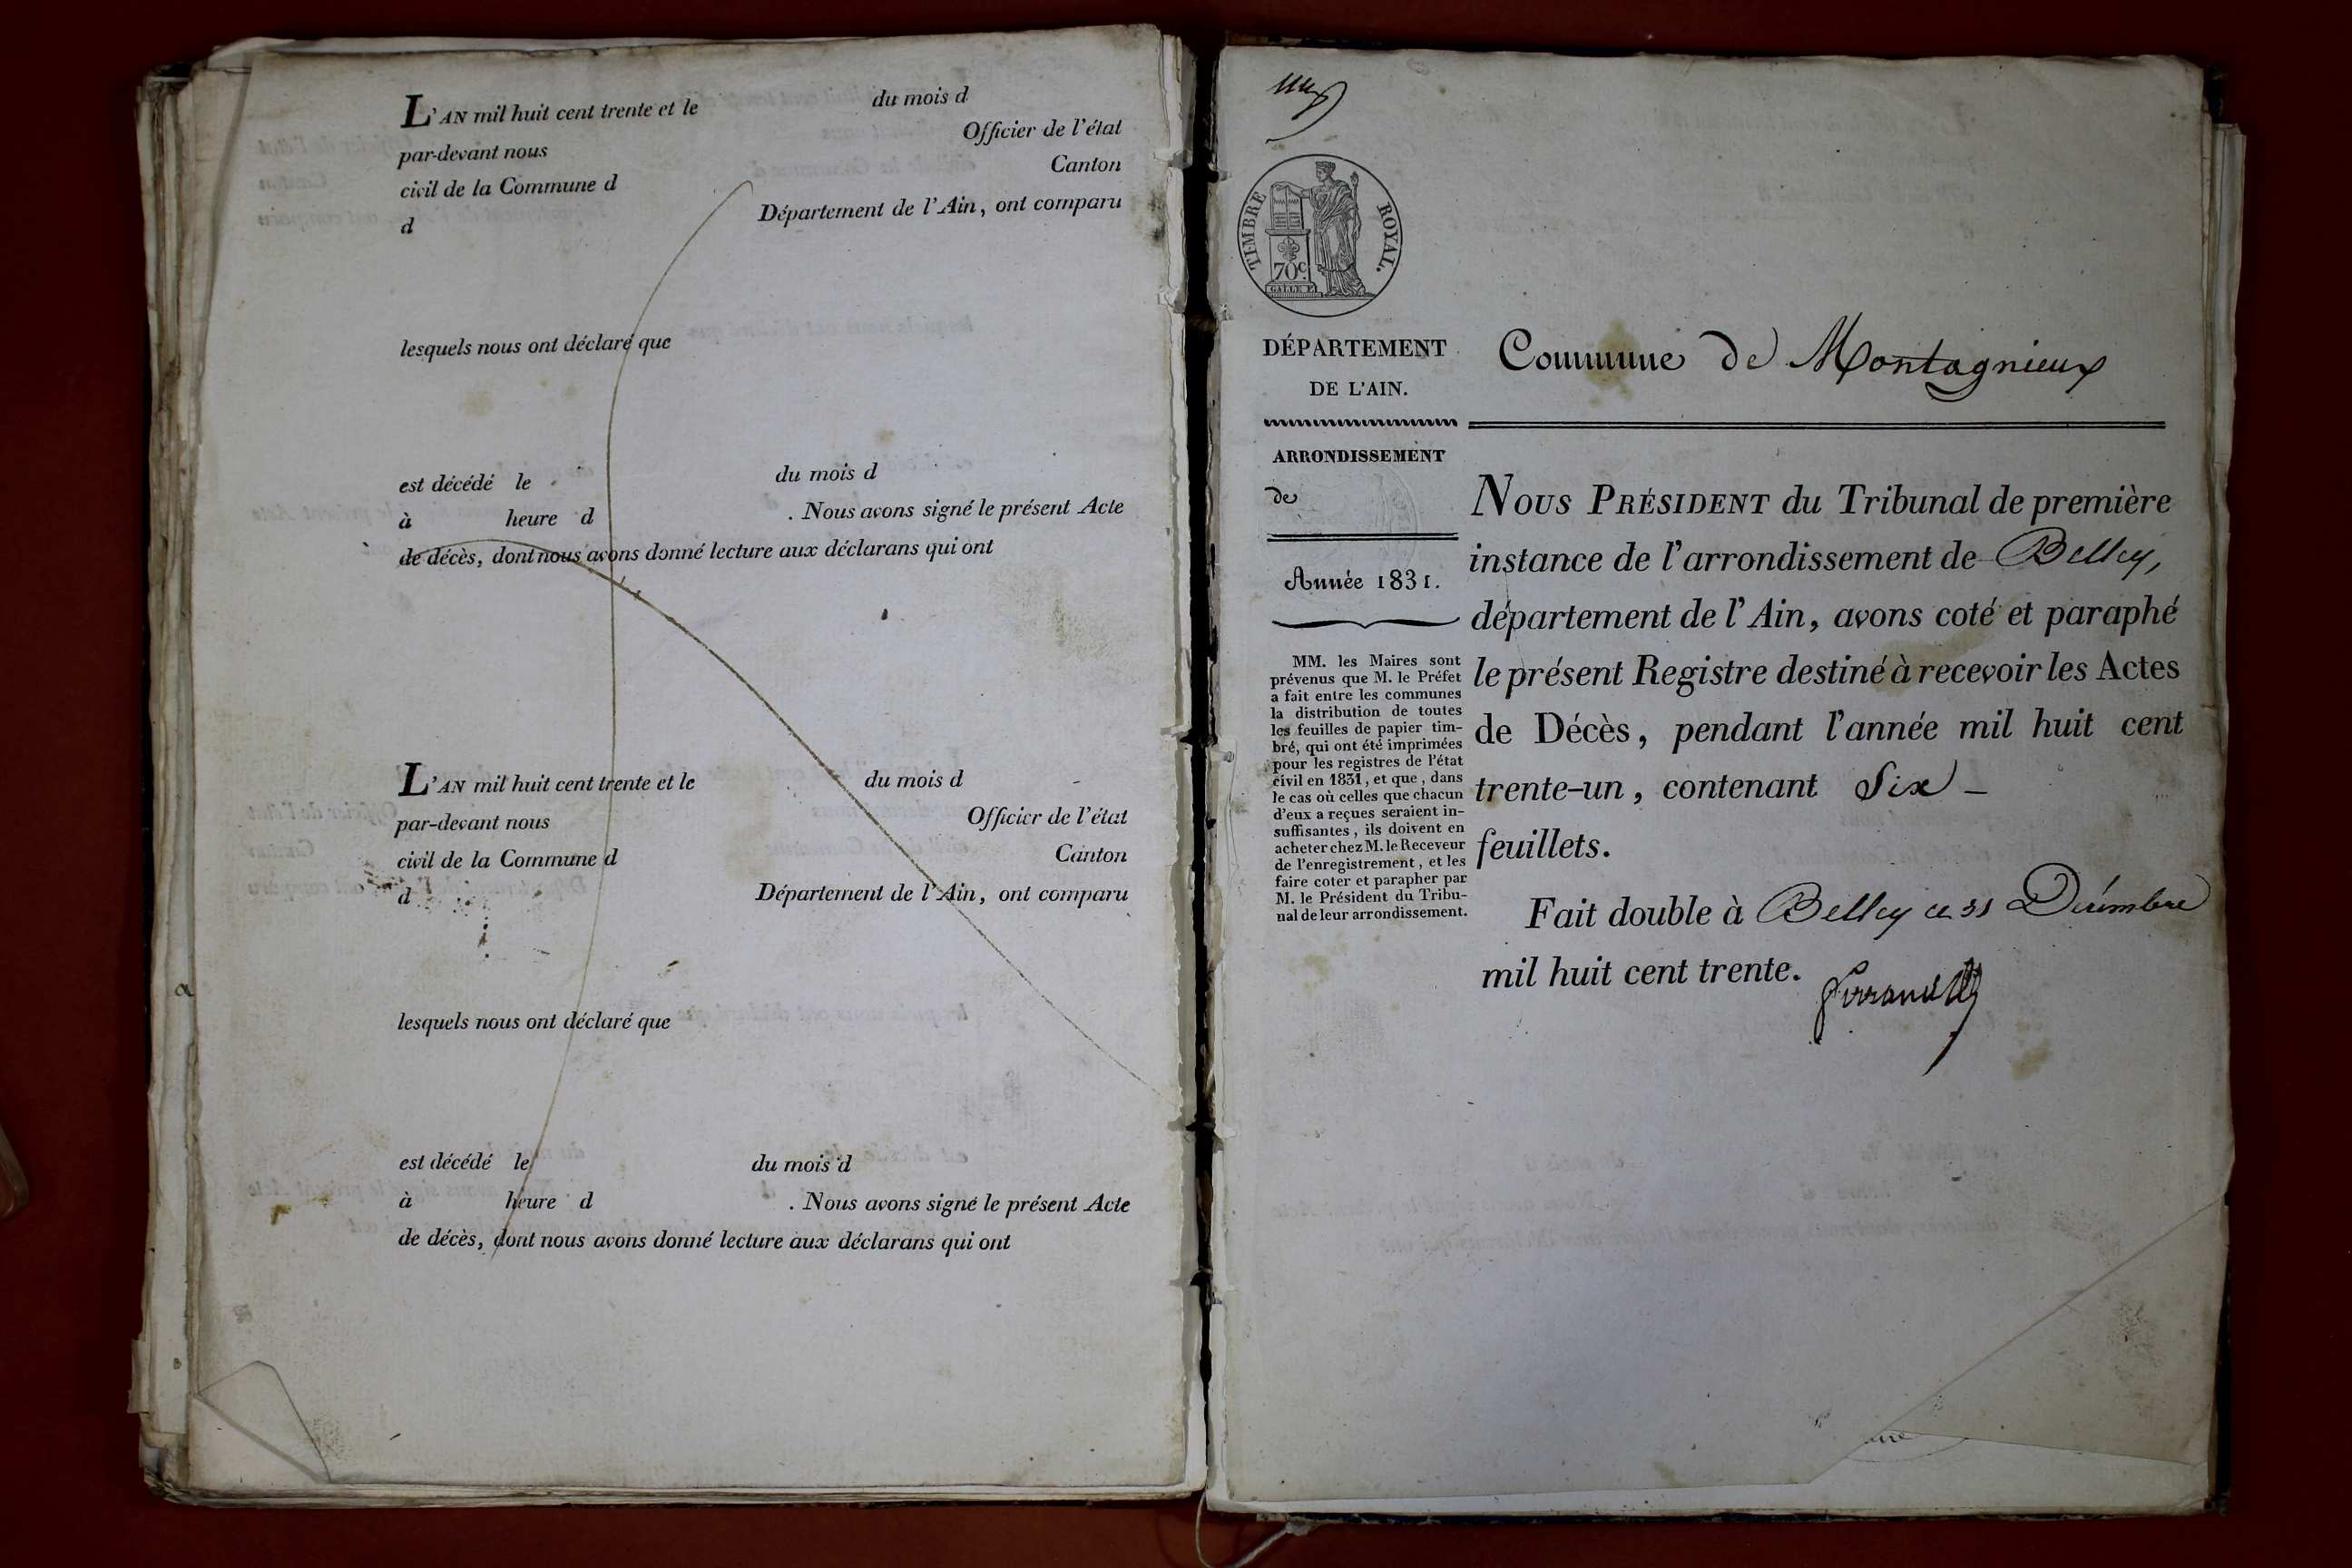 L'AN mil huit cent trente et le du mois d
par-devant nous Officier de l'état
civil de la Commune d Canton
d Département de l'Ain, ont comparu
lesquels nous ont déclaré que
est décédé le du mois d
à heure d . Nous avons signé le présent Acte
de décès, dont nous avons donné lecture aux déclarans qui ont
L'AN mil huit cent trente et le du mois d
par-devant nous Officier de l'état
civil de la Commune d Canton
d Département de l'Ain, ont comparu
lesquels nous ont déclaré que
est décédé le du mois d
à heure d . Nous avons signé le présent Acte
de décès, dont nous avons donné lecture aux déclarans qui ont
TIMBRE ROYAL.
70c.
GALLE F.
DÉPARTEMENT
DE L'AIN.
ARRONDISSEMENT
de
Année 1831.
MM. les Maires sont
prévenus que M. le Préfet
a fait entre les communes
la distribution de toutes
les feuilles de papier tim-
bré, qui ont été imprimées
pour les registres de l'état
civil en 1831, et que, dans
le cas où celles que chacun
d'eux a reçues seraient in-
suffisantes, ils doivent en
acheter chez M. le Receveur
de l'enregistrement, et les
faire coter et parapher par
M. le Président du Tribu-
nal de leur arrondissement.
Commune de Montagnieux
NOUS PRÉSIDENT du Tribunal de première
instance de l'arrondissement de Belley,
département de l'Ain, avons coté et paraphé
le présent Registre destiné à recevoir les Actes
de Décès, pendant l'année mil huit cent
trente-un, contenant Six –
feuillets.
Fait double à Belley ce 31 Décembre
mil huit cent trente.